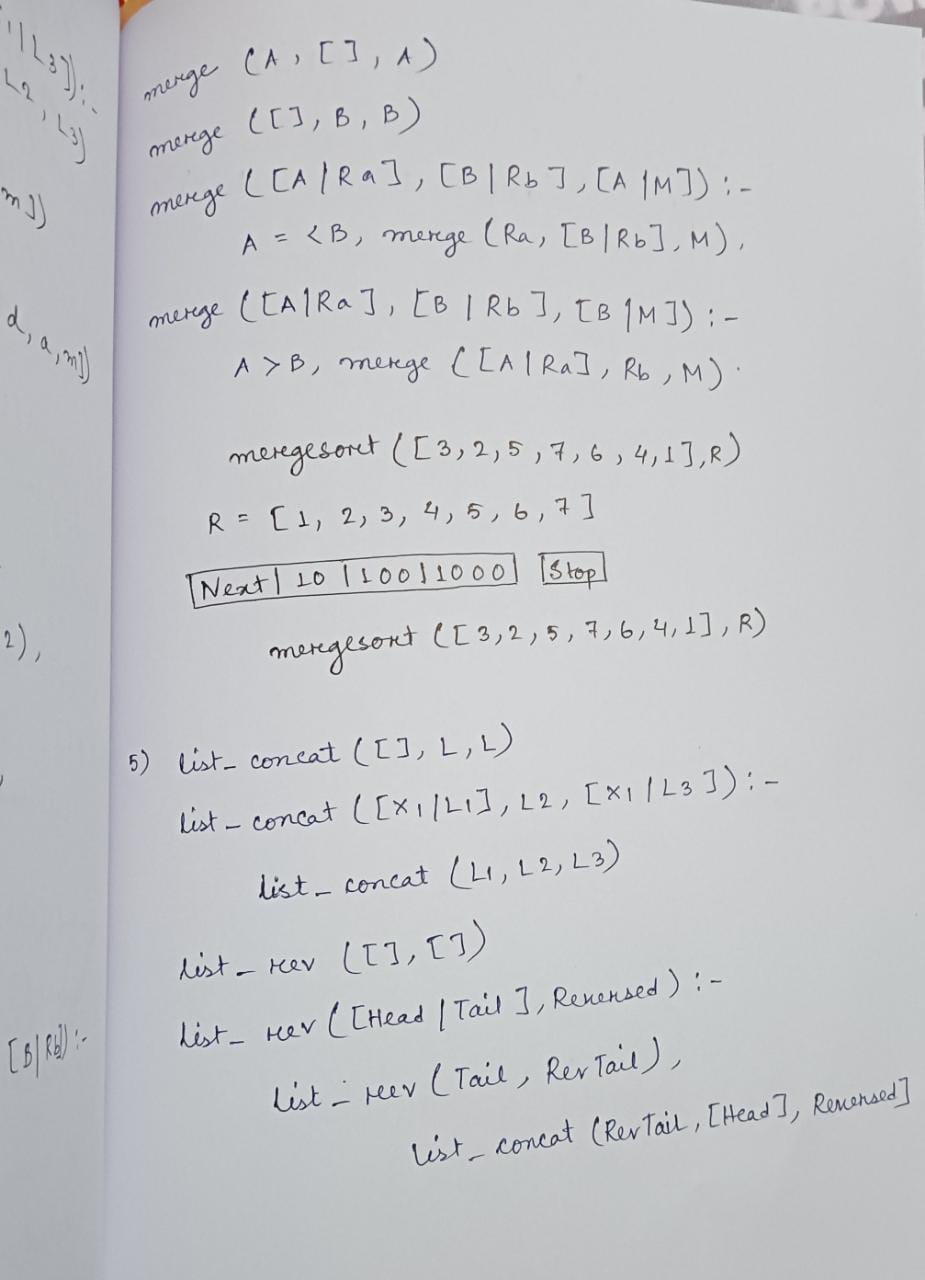 ' | L3]):-
L2, L3)
m])
d, a, m])
2),
[B|Rb]) :-
merge (A, [], A)
merge ([], B, B)
merge ([A|Ra], [B|Rb], [A|M]) :-
A = <B, merge (Ra, [B|Rb], M),
merge ([A|Ra], [B|Rb], [B|M]) :-
A > B, merge ([A|Ra], Rb, M).
meregesoret ([3,2,5,7,6,4,1],R)
R = [1, 2, 3, 4, 5, 6, 7]
Next | 10 | 100 | 1000 | Stop
meregesort ([3,2,5,7,6,4,1], R)
5) list_concat ([], L, L)
list_concat ([X1|L1], L2, [X1|L3]) :-
list_concat (L1, L2, L3)
list_rev ([], [])
list_rev ([Head | Tail], Reversed) :-
list_rev (Tail, RevTail),
list_concat (RevTail, [Head], Reversed]